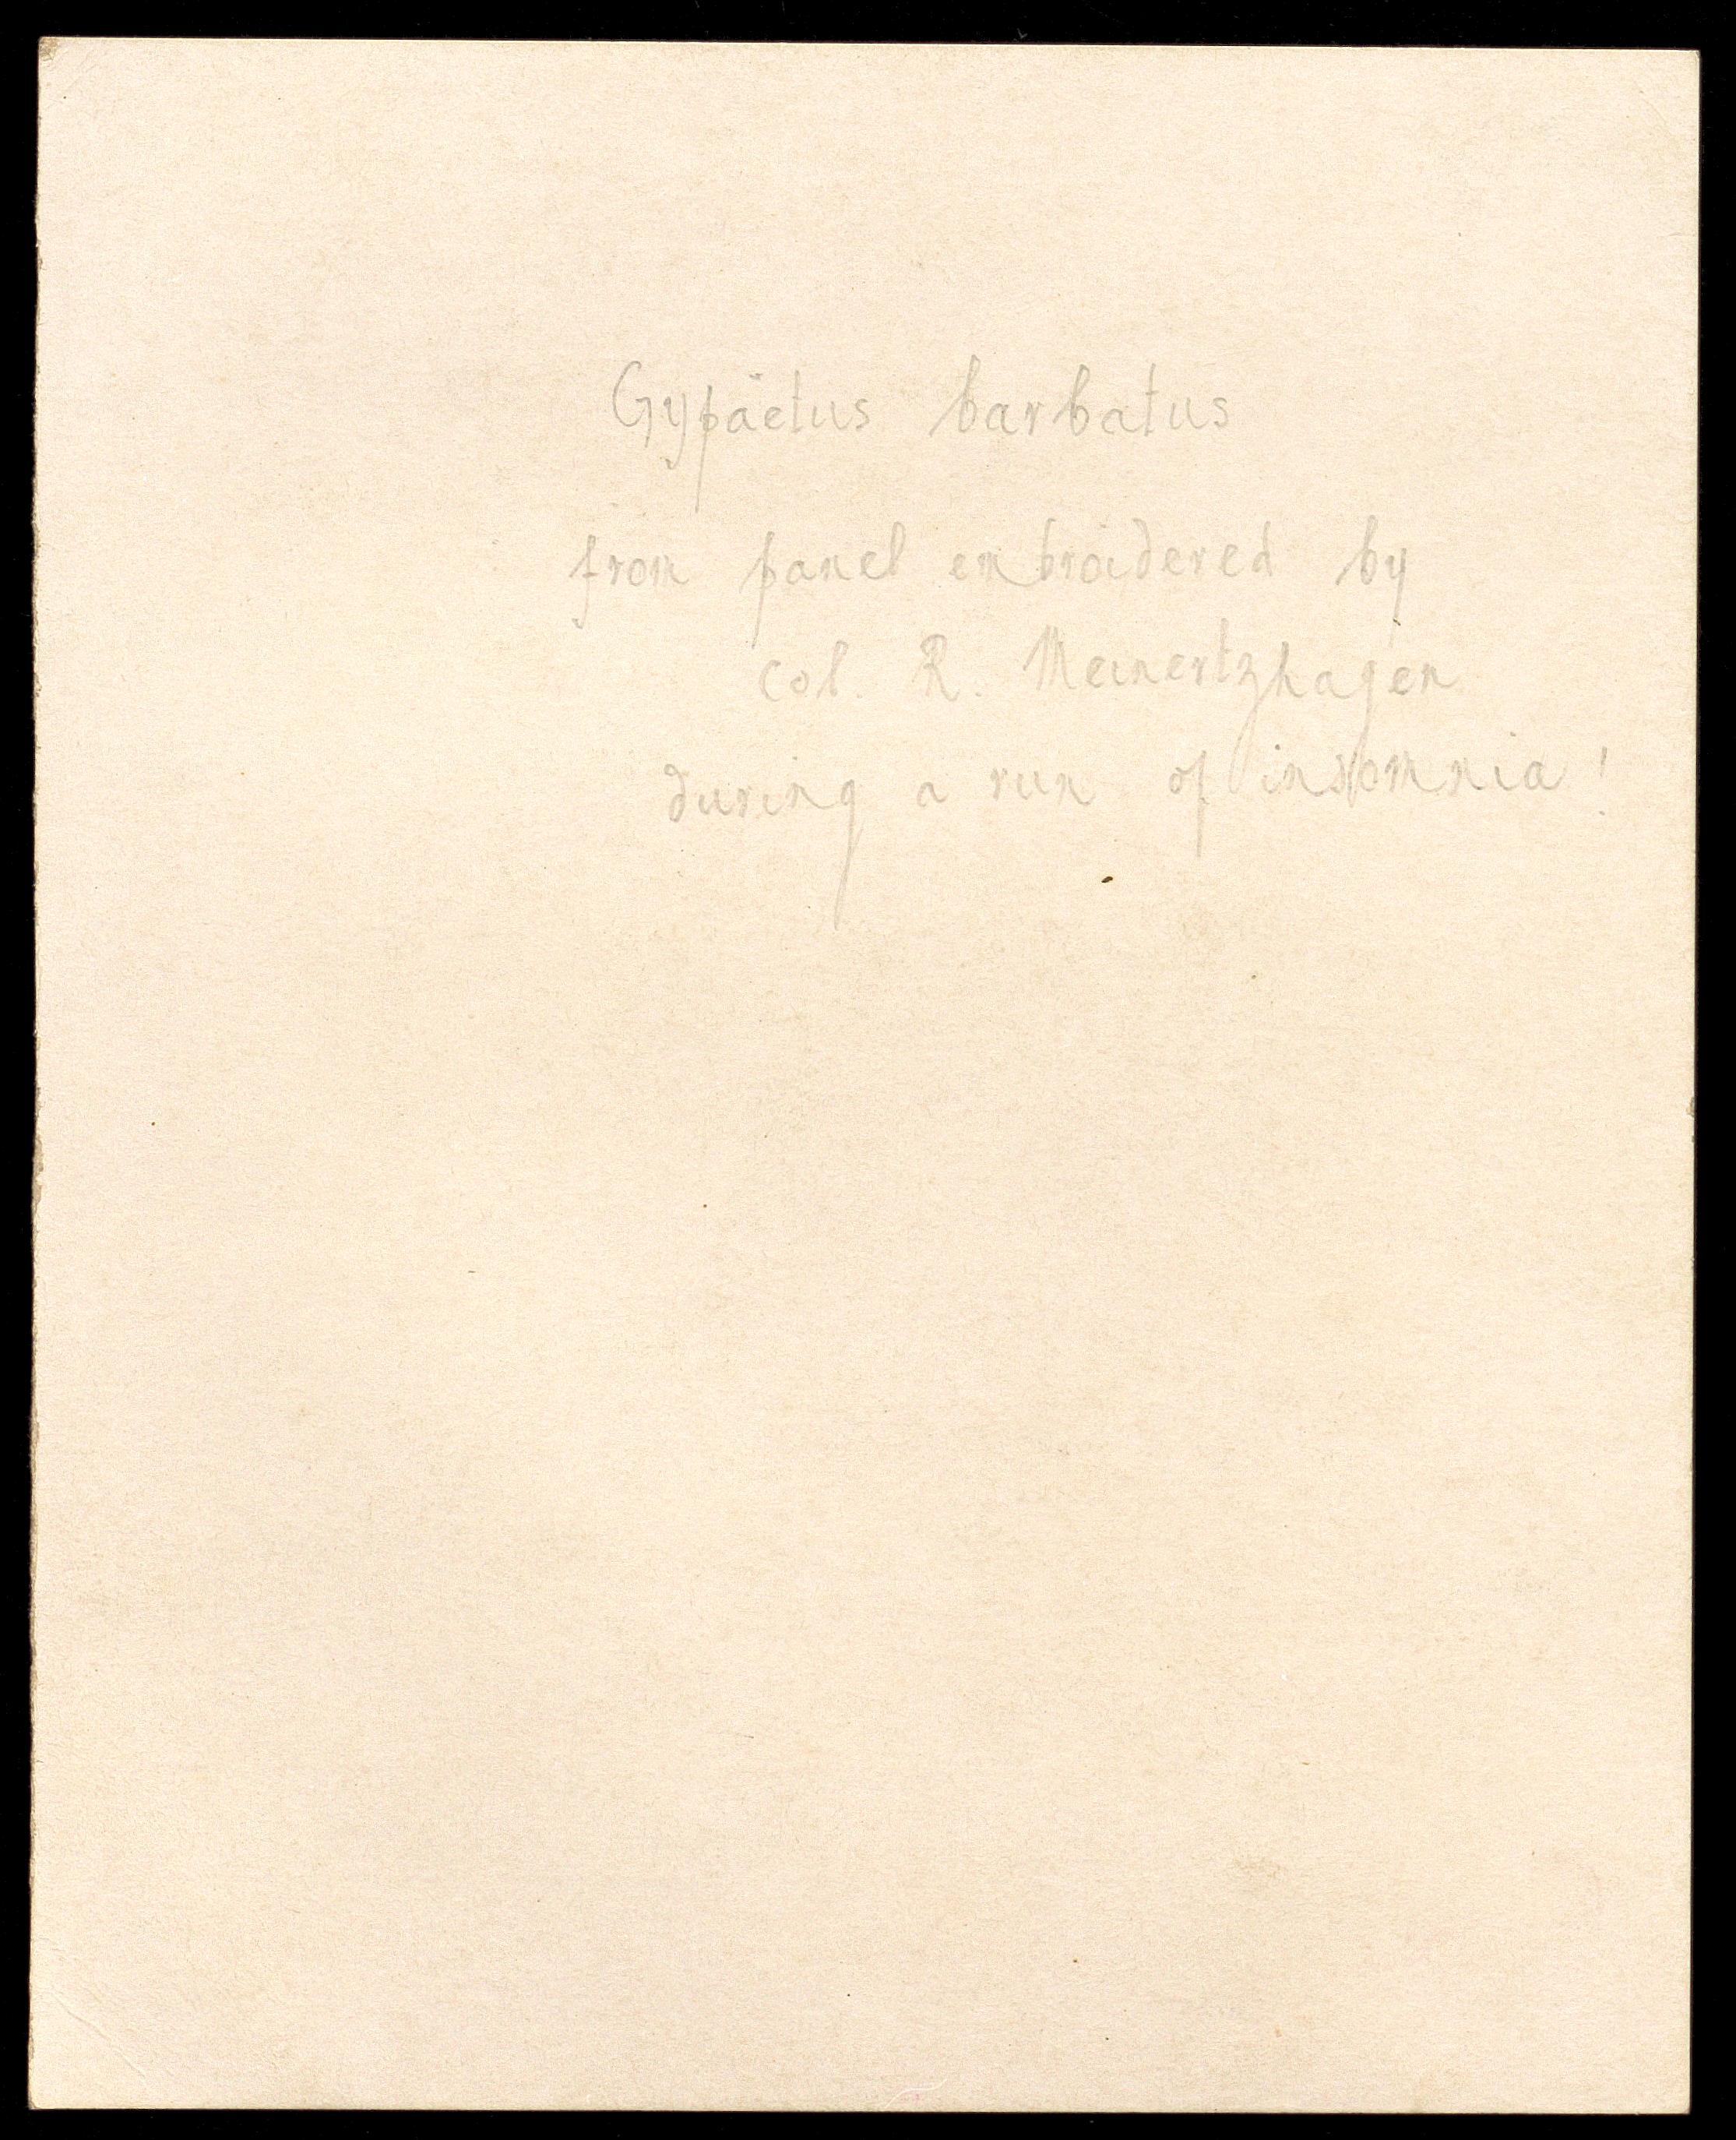 Gypäetus barbatus
from panel embroidered by
Col. R. Meinertzhagen
during a run of insomnia!